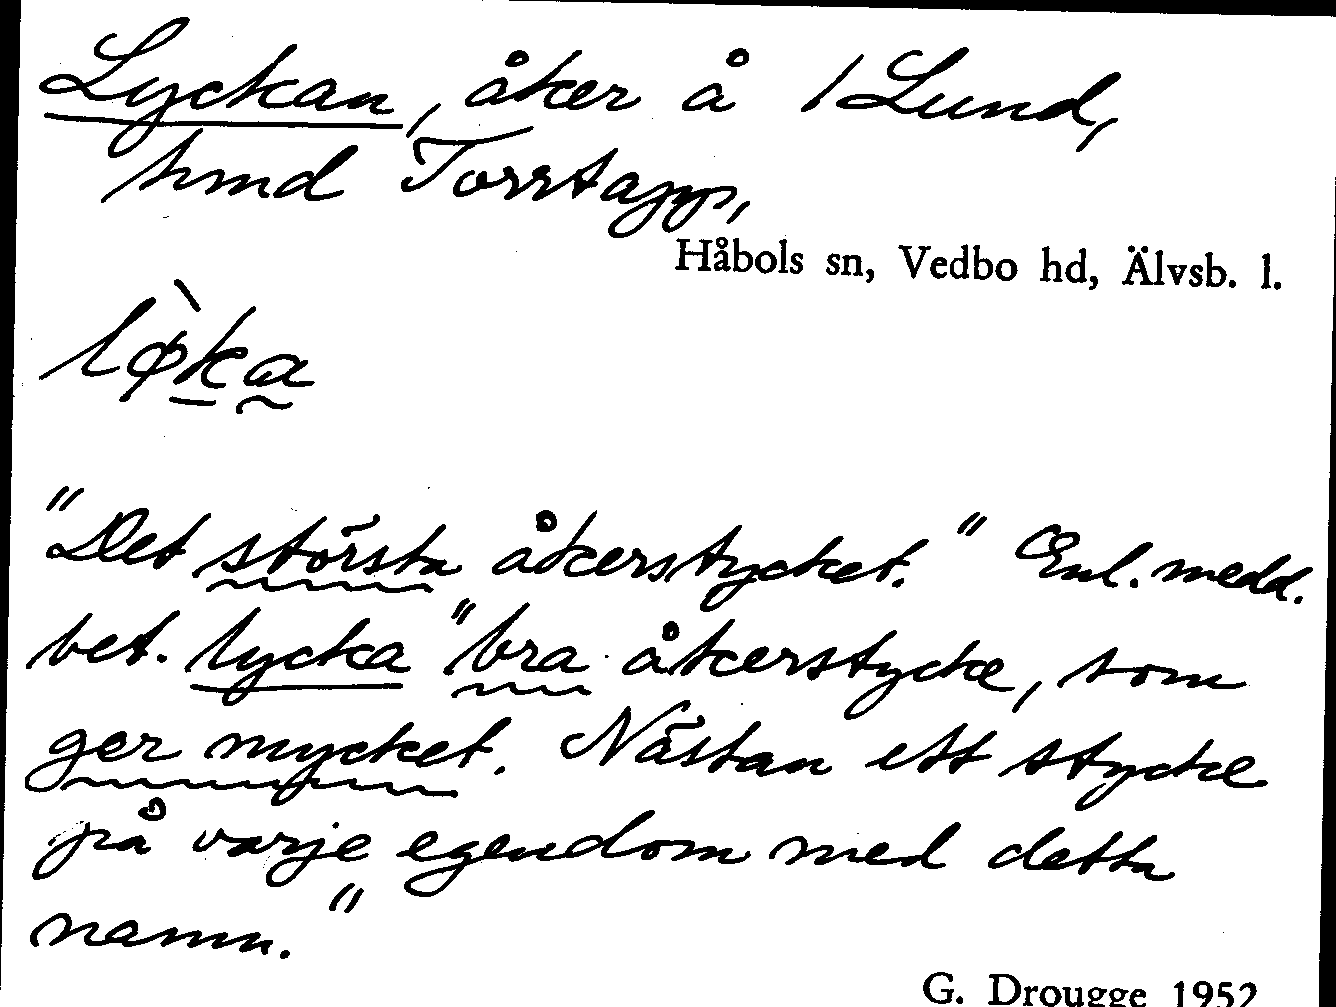 Lyckan, åker å 1 Lund,
hmd Torrtapp,
Håbols sn, Vedbo hd, Älvsb. l.
lø̀ka
"Det största åkerstycket." Enl. medd.
bet. lycka "bra åkerstycke, som
ger mycket. Nästan ett stycke
på varje egendom med detta
namn."
G. Drougge 1952